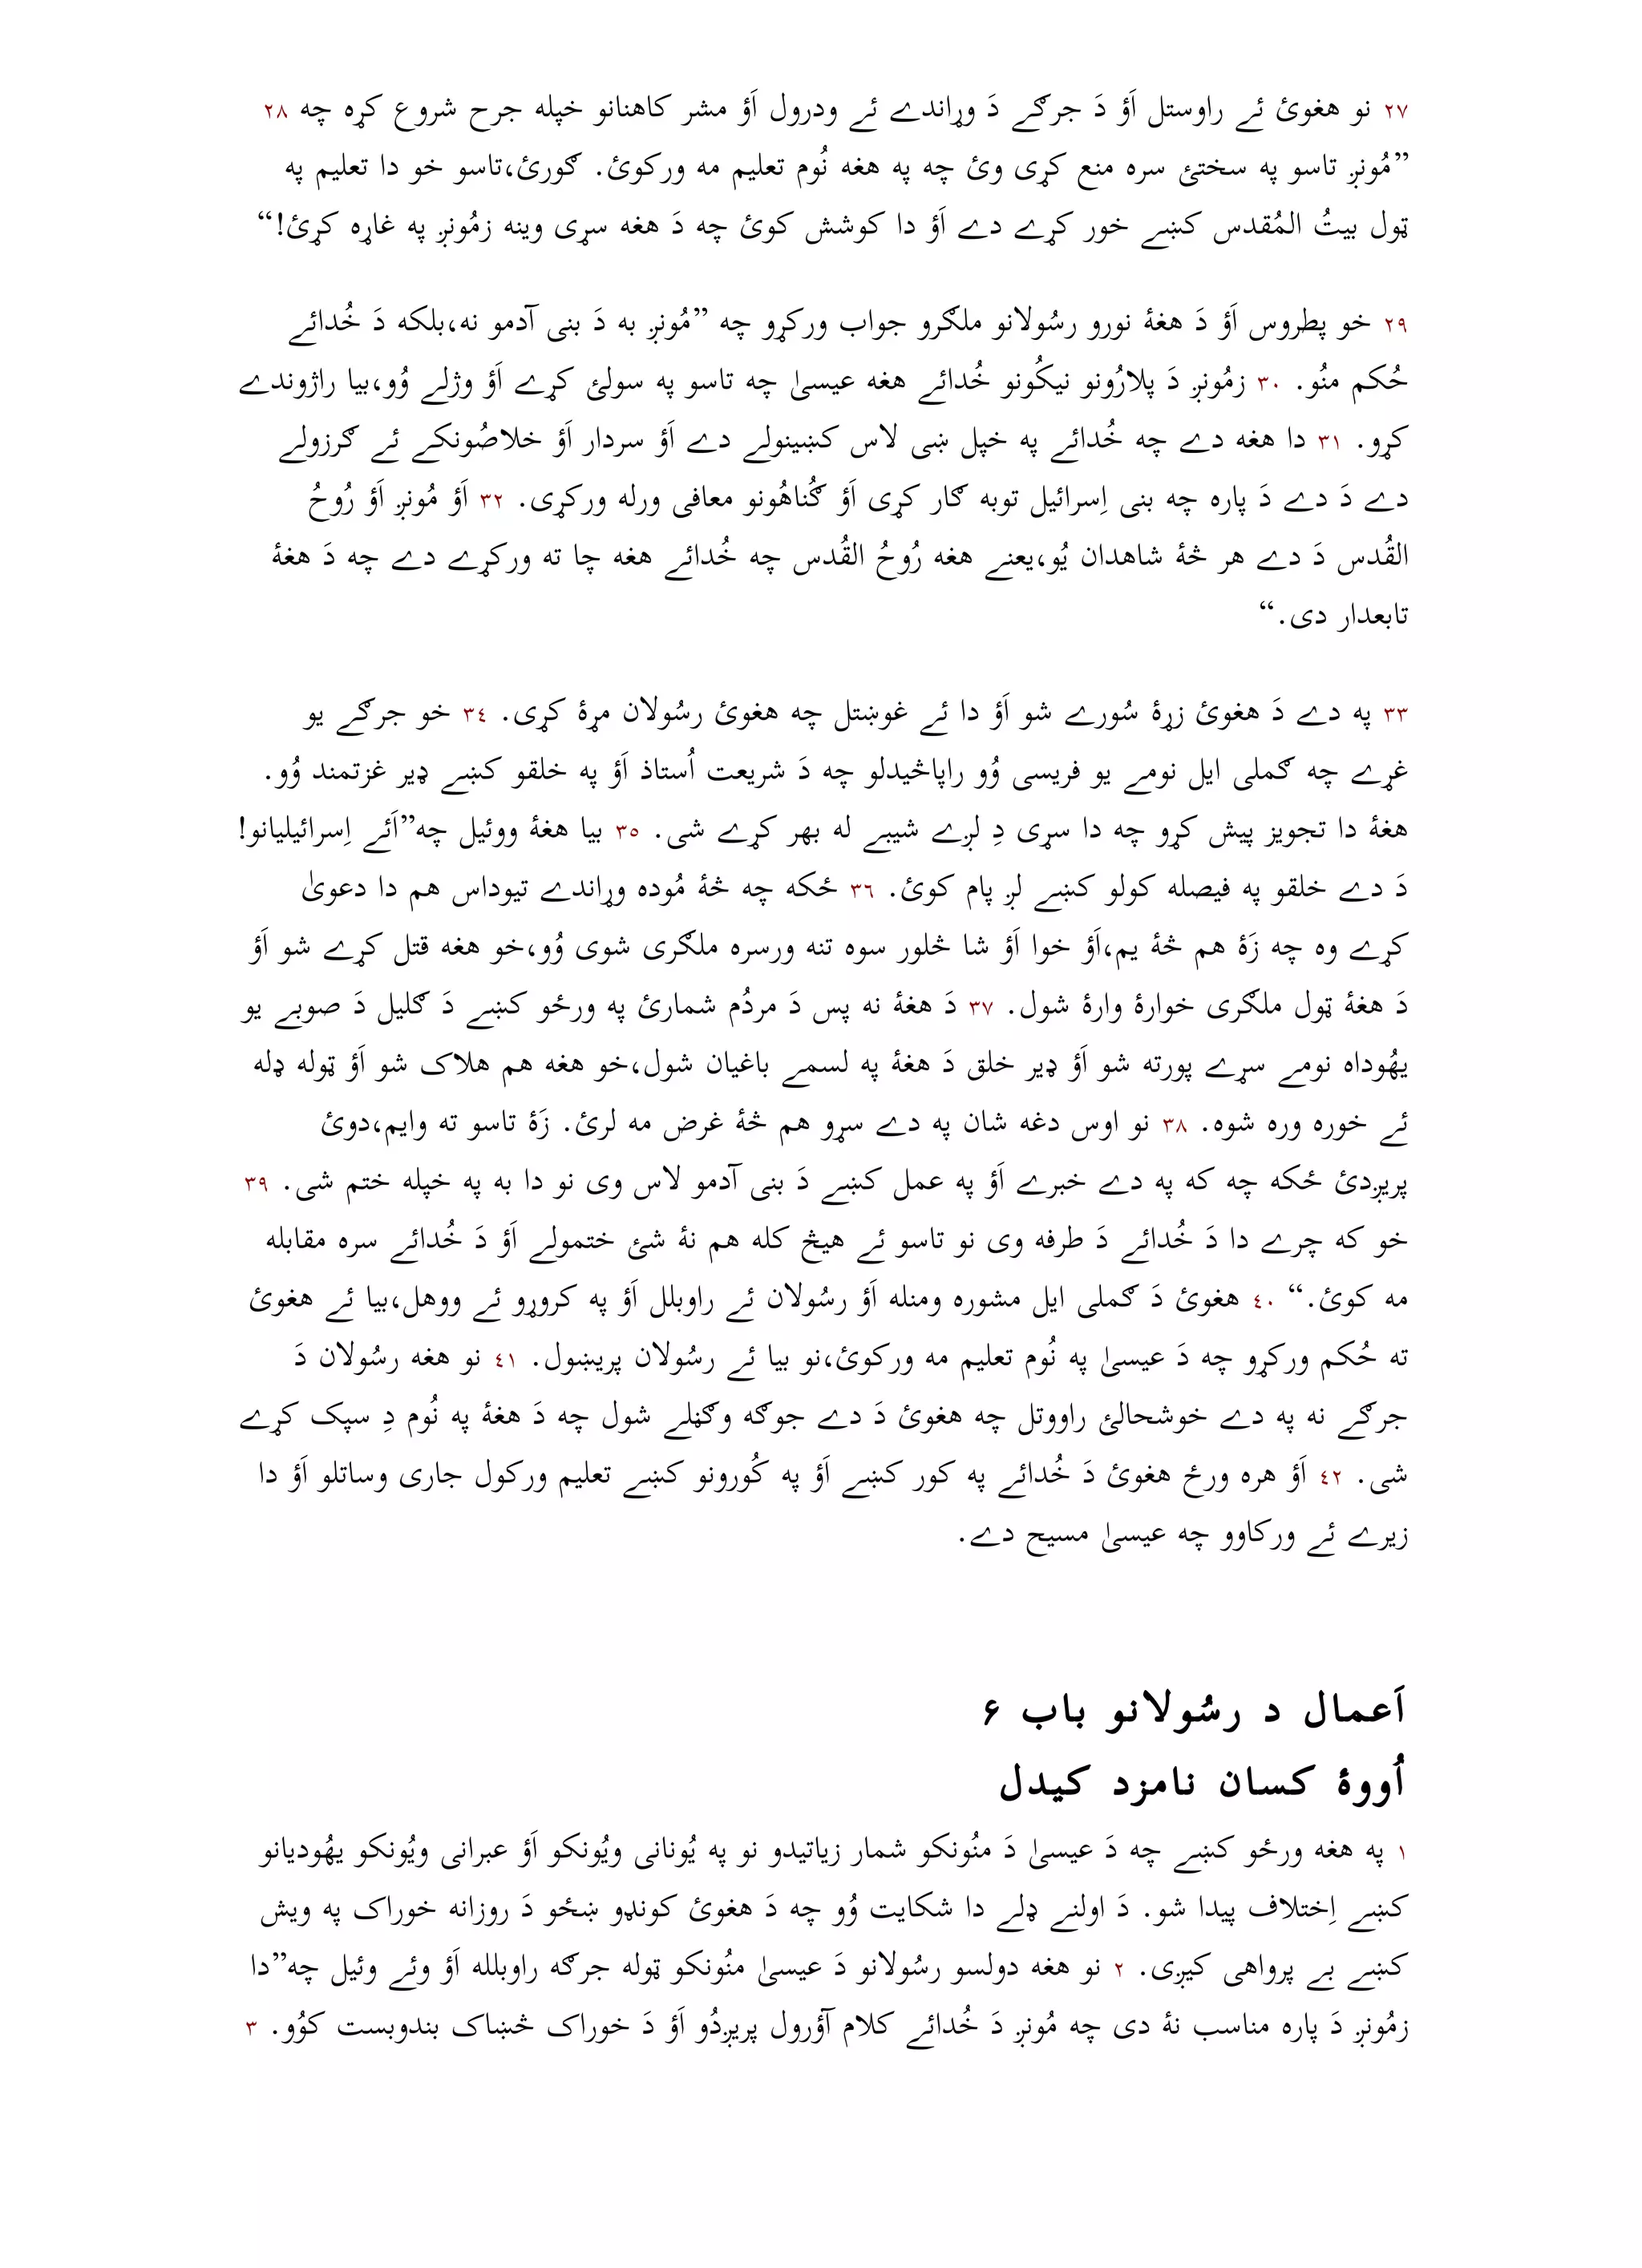 ۲۷ نو هغوئ ئے راوستل اَؤ دَ جرګے دَ وړاندے ئے ودرول اَؤ مشر کاهنانو خپله جرح شروع کړه چه ۲۸
”مُونږ تاسو په سختئ سره منع کړی وئ چه په هغه نُوم تعلیم مه ورکوئ. ګورئ،تاسو خو دا تعلیم په
ټول بیتُ المُقدس کښے خور کړے دے اَؤ دا کوشش کوئ چه دَ هغه سړی وینه زمُونږ په غاړه کړئ!“
۲۹ خو پطروس اَؤ دَ هغۀ نورو رسُولانو ملګرو جواب ورکړو چه ”مُونږ به دَ بنی آدمو نه،بلکه دَ خُدائے
حُکم منُو. ۳۰ زمُونږ دَ پلارُونو نیکُونو خُدائے هغه عیسیٰ چه تاسو په سولئ کړے اَؤ وژلے وُو،بیا راژوندے
کړو. ۳۱ دا هغه دے چه خُدائے په خپل ښی لاس کښینولے دے اَؤ سردار اَؤ خلاصُونکے ئے ګرزولے
دے دَ دے دَ پاره چه بنی اِسرائیل توبه ګار کړی اَؤ ګُناهُونو معافی ورله ورکړی. ۳۲ اَؤ مُونږ اَؤ رُوحُ
القُدس دَ دے هر څۀ شاهدان یُو،یعنے هغه رُوحُ القُدس چه خُدائے هغه چا ته ورکړے دے چه دَ هغۀ
تابعدار دی.“
۳۳ په دے دَ هغوئ زړۀ سُورے شو اَؤ دا ئے غوښتل چه هغوئ رسُولان مړۀ کړی. ۳٤ خو جرګے یو
غړے چه ګملی ایل نومے یو فریسی وُو راپاڅیدلو چه دَ شریعت اُستاذ اَؤ په خلقو کښے ډیر غزتمند وُو.
هغۀ دا تجویز پیش کړو چه دا سړی دِ لږے شیبے له بهر کړے شی. ۳٥ بیا هغۀ ووئیل چه”اَئے اِسرائیلیانو!
دَ دے خلقو په فیصله کولو کښے لږ پام کوئ. ۳٦ ځکه چه څۀ مُوده وړاندے تیوداس هم دا دعویٰ
کړے وه چه زَۀ هم څۀ یم،اَؤ خوا اَؤ شا څلور سوه تنه ورسره ملګری شوی وُو،خو هغه قتل کړے شو اَؤ
دَ هغۀ ټول ملګری خوارۀ وارۀ شول. ۳۷ دَ هغۀ نه پس دَ مردُم شمارئ په ورځو کښے دَ ګلیل دَ صوبے یو
یهُوداه نومے سړے پورته شو اَؤ ډیر خلق دَ هغۀ په لسمے باغیان شول،خو هغه هم هلاک شو اَؤ ټوله ډله
ئے خوره وره شوه. ۳۸ نو اوس دغه شان په دے سړو هم څۀ غرض مه لرئ. زَۀ تاسو ته وایم،دوئ
پریږدئ ځکه چه که په دے خبرے اَؤ په عمل کښے دَ بنی آدمو لاس وی نو دا به په خپله ختم شی. ۳۹
خو که چرے دا دَ خُدائے دَ طرفه وی نو تاسو ئے هیڅ کله هم نۀ شئ ختمولے اَؤ دَ خُدائے سره مقابله
مه کوئ.“ ٤۰ هغوئ دَ ګملی ایل مشوره ومنله اَؤ رسُولان ئے راوبلل اَؤ په کروړو ئے ووهل،بیا ئے هغوئ
ته حُکم ورکړو چه دَ عیسیٰ په نُوم تعلیم مه ورکوئ،نو بیا ئے رسُولان پریښول. ٤۱ نو هغه رسُولان دَ
جرګے نه په دے خوشحالئ راووتل چه هغوئ دَ دے جوګه وګڼلے شول چه دَ هغۀ په نُوم دِ سپک کړے
شی. ٤۲ اَؤ هره ورځ هغوئ دَ خُدائے په کور کښے اَؤ په کُورونو کښے تعلیم ورکول جاری وساتلو اَؤ دا
زیرے ئے ورکاوو چه عیسیٰ مسیح دے.
اَعمال د رسُولانو باب ۶
اُووۀ کسان نامزد کیدل
۱ په هغه ورځو کښے چه دَ عیسیٰ دَ منُونکو شمار زیاتیدو نو په یُونانی ویُونکو اَؤ عبرانی ویُونکو یهُودیانو
کښے اِختلاف پیدا شو. دَ اولنے ډلے دا شکایت وُو چه دَ هغوئ کونډو ښځو دَ روزانه خوراک په ویش
کښے بے پرواهی کیږی. ۲ نو هغه دولسو رسُولانو دَ عیسیٰ منُونکو ټوله جرګه راوبلله اَؤ وئے وئیل چه”دا
زمُونږ دَ پاره مناسب نۀ دی چه مُونږ دَ خُدائے کلام آؤرول پریږدُو اَؤ دَ خوراک څښاک بندوبست کوُو. ۳